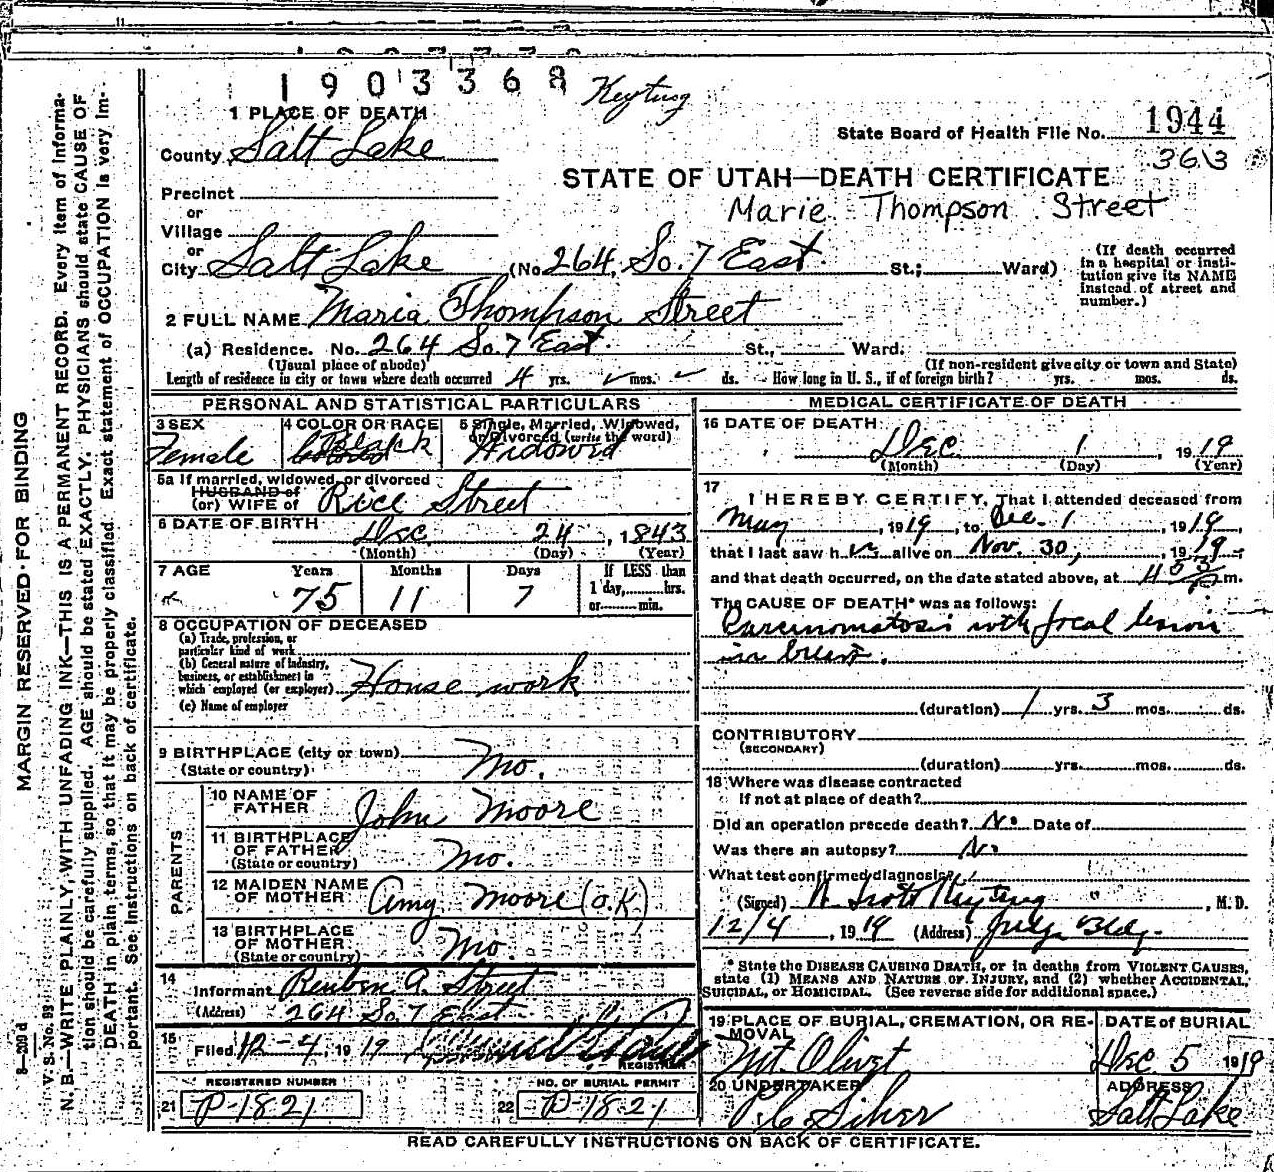 11
1903368 Keyting
1 PLACE OF DEATH
State Board of Health File No. 1944
County Salt Lake
3613
STATE OF UTAH—DEATH CERTIFICATE
Precinct
Marie Thompson Street
or
Village
or
City Salt Lake (No. 264, So. 7 East St.; Ward)
(If death occurred in a hospital or institution give its NAME instead of street and number.)
2 FULL NAME Maria Thompson Street
(a) Residence. No. 264 So. 7 East St., Ward.
(Usual place of abode) (If non-resident give city or town and State)
Length of residence in city or town where death occurred 4 yrs. mos. ds. How long in U. S., if of foreign birth? yrs. mos. ds.
PERSONAL AND STATISTICAL PARTICULARS
3 SEX Female
4 COLOR OR RACE Black
5 Single, Married, Widowed, or Divorced (write the word) Widowed
5a If married, widowed, or divorced
HUSBAND of
(or) WIFE of Rice Street
6 DATE OF BIRTH Dec. 24, 1843
(Month) (Day) (Year)
7 AGE Years Months Days If LESS than
75 11 7 1 day, hrs.
or min.
8 OCCUPATION OF DECEASED
(a) Trade, profession, or
particular kind of work
(b) General nature of industry,
business, or establishment in
which employed (or employer) House work
(c) Name of employer
9 BIRTHPLACE (city or town)
(State or country) Mo.
PARENTS
10 NAME OF FATHER John Moore
11 BIRTHPLACE OF FATHER
(State or country) Mo.
12 MAIDEN NAME OF MOTHER Amy Moore (O.K)
13 BIRTHPLACE OF MOTHER
(State or country) Mo.
14 Informant Reuben A. Street
(Address) 264 So. 7 East
15 Filed 12-4, 1919
REGISTRAR
REGISTERED NUMBER NO. OF BURIAL PERMIT
21 P-1821 22 P-1821
MEDICAL CERTIFICATE OF DEATH
16 DATE OF DEATH
Dec. 1, 1919
(Month) (Day) (Year)
17 I HEREBY CERTIFY, That I attended deceased from
May, 1919, to Dec. 1, 1919,
that I last saw h er alive on Nov. 30, 1919,
and that death occurred, on the date stated above, at m.
The CAUSE OF DEATH* was as follows:
Carcinomatosis with focal lesion
in breast.
(duration) 1 yrs. 3 mos. ds.
CONTRIBUTORY
(SECONDARY)
(duration) yrs. mos. ds.
18 Where was disease contracted
If not at place of death?
Did an operation precede death? No Date of
Was there an autopsy? No
What test confirmed diagnosis?
(Signed) Keyting, M. D.
12/4, 1919 (Address) Bldg.
* State the DISEASE CAUSING DEATH, or in deaths from VIOLENT CAUSES,
state (1) MEANS AND NATURE OF INJURY, and (2) whether ACCIDENTAL,
SUICIDAL, or HOMICIDAL. (See reverse side for additional space.)
19 PLACE OF BURIAL, CREMATION, OR REMOVAL DATE of BURIAL
Mt. Olivet Dec 5 1919
20 UNDERTAKER ADDRESS
Salt Lake
READ CAREFULLY INSTRUCTIONS ON BACK OF CERTIFICATE.
MARGIN RESERVED FOR BINDING
V. S. No. 89
N. B.—WRITE PLAINLY, WITH UNFADING INK—THIS IS A PERMANENT RECORD. Every item of informa-
tion should be carefully supplied. AGE should be stated EXACTLY. PHYSICIANS should state CAUSE OF
DEATH in plain terms, so that it may be properly classified. Exact statement of OCCUPATION is very im-
portant. See instructions on back of certificate.